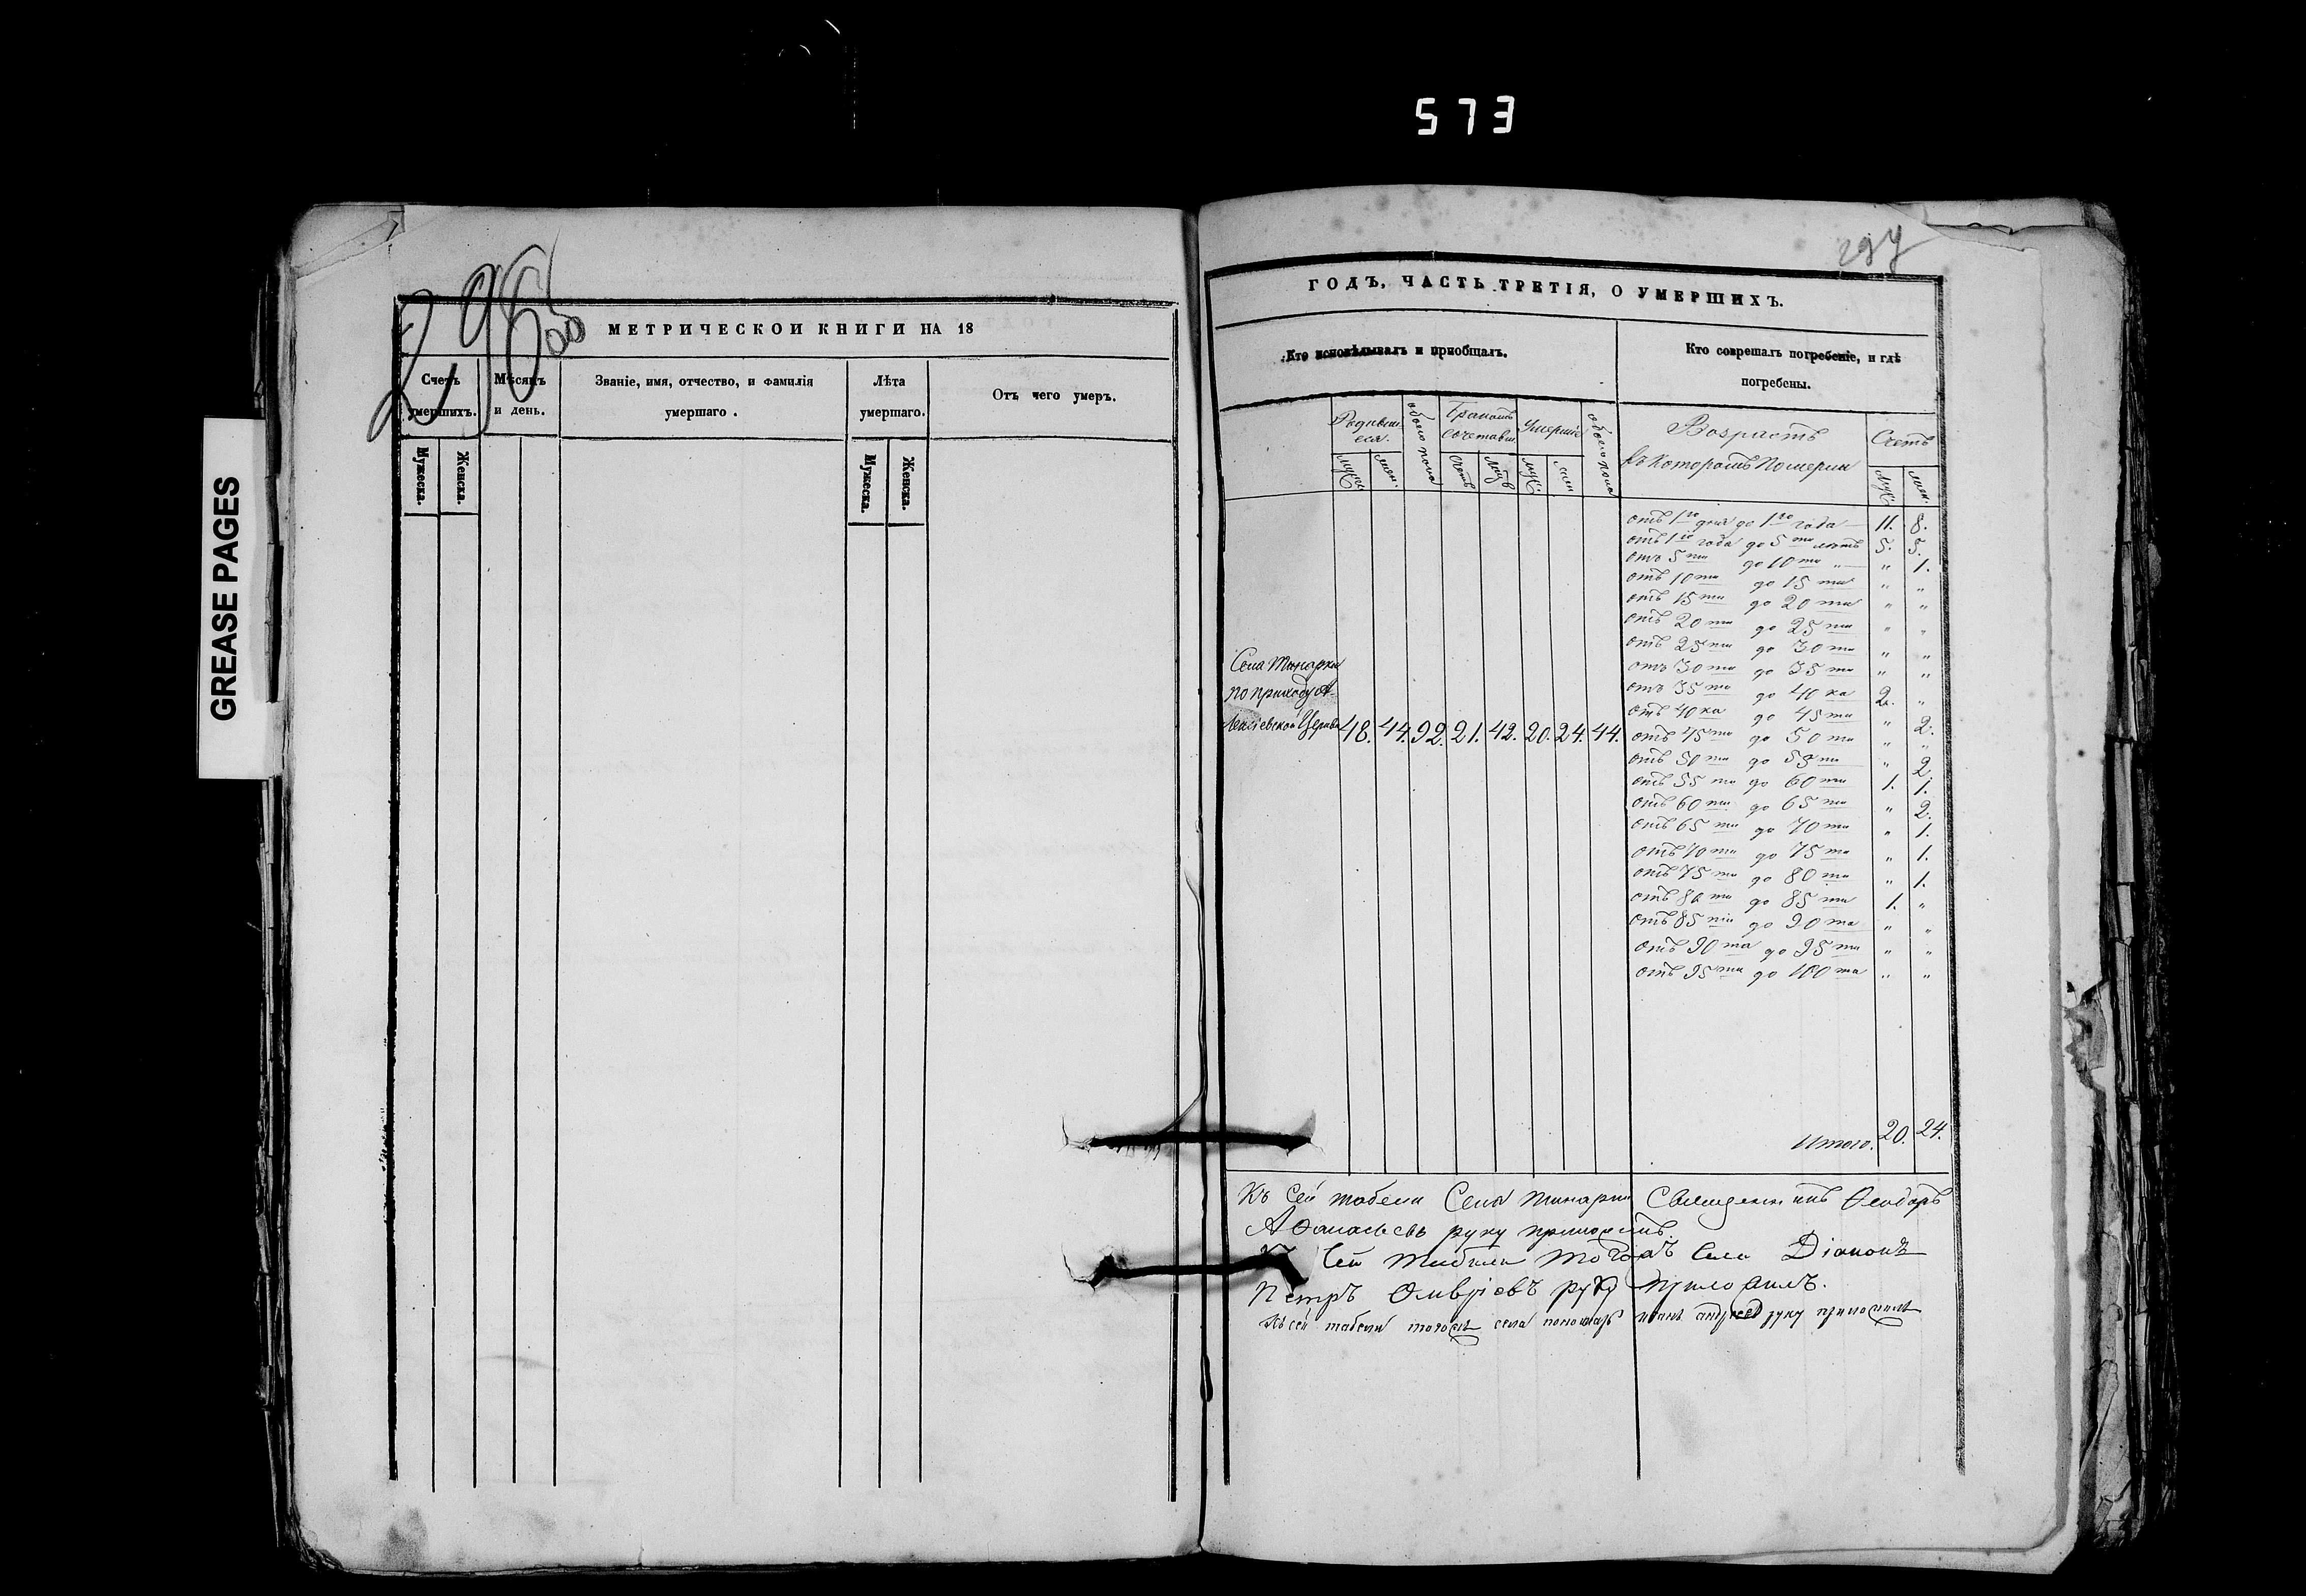 573
GREASE PAGES
298
МЕТРИЧЕСКОЙ КНИГИ НА 18
Счетъ умершихъ.
Мужеска.
Женска.
Мѣсяцъ и день.
Званіе, имя, отчество, и фамилія умершаго.
Лѣта умершаго.
Мужеска.
Женска.
Отъ чего умеръ.
297
ГОДЪ, ЧАСТЬ ТРЕТІЯ, О УМЕРШИХЪ.
Кто исповѣдывалъ и приобщалъ.
Кто соврешалъ погребеніе, и гдѣ
погребены.
Родивши
еся.
обоего пола
Бракомъ
Сочетавш.
Умершіе
обоего пола
Возрастъ
въ которомъ Померли
Счетъ
муж.
жен.
отъ 1го дня до 1го года 11. 8.
отъ 1го года до 5ти лѣтъ 5. 5.
отъ 5ти до 10ти " 1.
отъ 10ти до 15ти " "
отъ 15ти до 20ти " "
отъ 20ти до 25ти " "
отъ 25ти до 30ти " "
отъ 30ти до 35ти " "
отъ 35ти до 40ка 2. "
отъ 40ка до 45ти " 2.
отъ 45ти до 50ти " "
отъ 50ти до 55ти " 2.
отъ 55ти до 60ти 1. 1.
отъ 60ти до 65ти " 2.
отъ 65ти до 70ти " 1.
отъ 70ти до 75ти " 1.
отъ 75ти до 80ти " 1.
отъ 80ти до 85ти 1. "
отъ 85ти до 90та " "
отъ 90та до 95ти " "
отъ 95ти до 100та " "
Села
по приходу А-
лексіевской Церкви 48. 44. 92. 21. 42. 20. 24. 44.
Итого. 20. 24.
Къ сей табели Села Священникъ Ѳеодоръ
Аѳанасьевъ руку приложилъ.
Сей табели тогожъ Села Діаконъ
Петръ руку приложилъ.
Къ сей табели тогожъ села пономарь иванъ андреевъ руку приложилъ